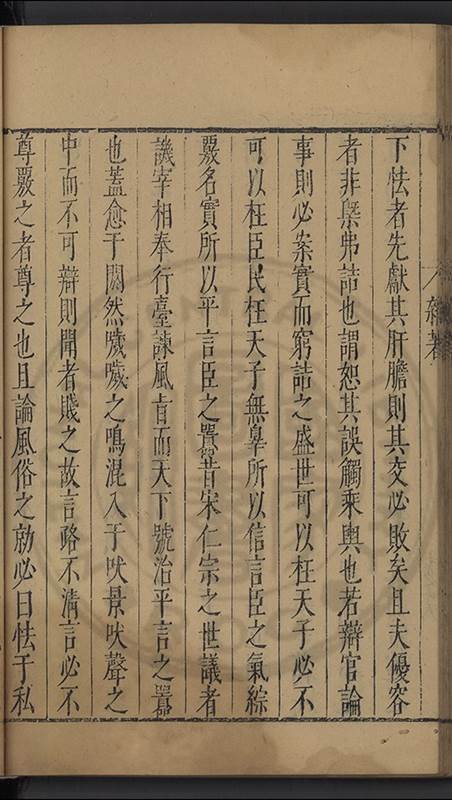 雜著
下怯者先獻其肝膽則其交必敗矣且夫優容
者非槩弗詰也謂恕其誤觸乘輿也若辯官論
事則必案實而窮詰之盛世可以枉天子必不
可以枉臣民枉天子無辠所以信言臣之氣綜
覈名實所以平言臣之囂昔宋仁宗之世議者
譏宰相奉行臺諫風肯而天下號治平言之囂
也蓋愈于闃然噦噦之鳴混入于吠景吠聲之
中而不可辯則聞者賤之故言路不清言必不
尊覈之者尊之也且論風俗之勍必曰怯于私